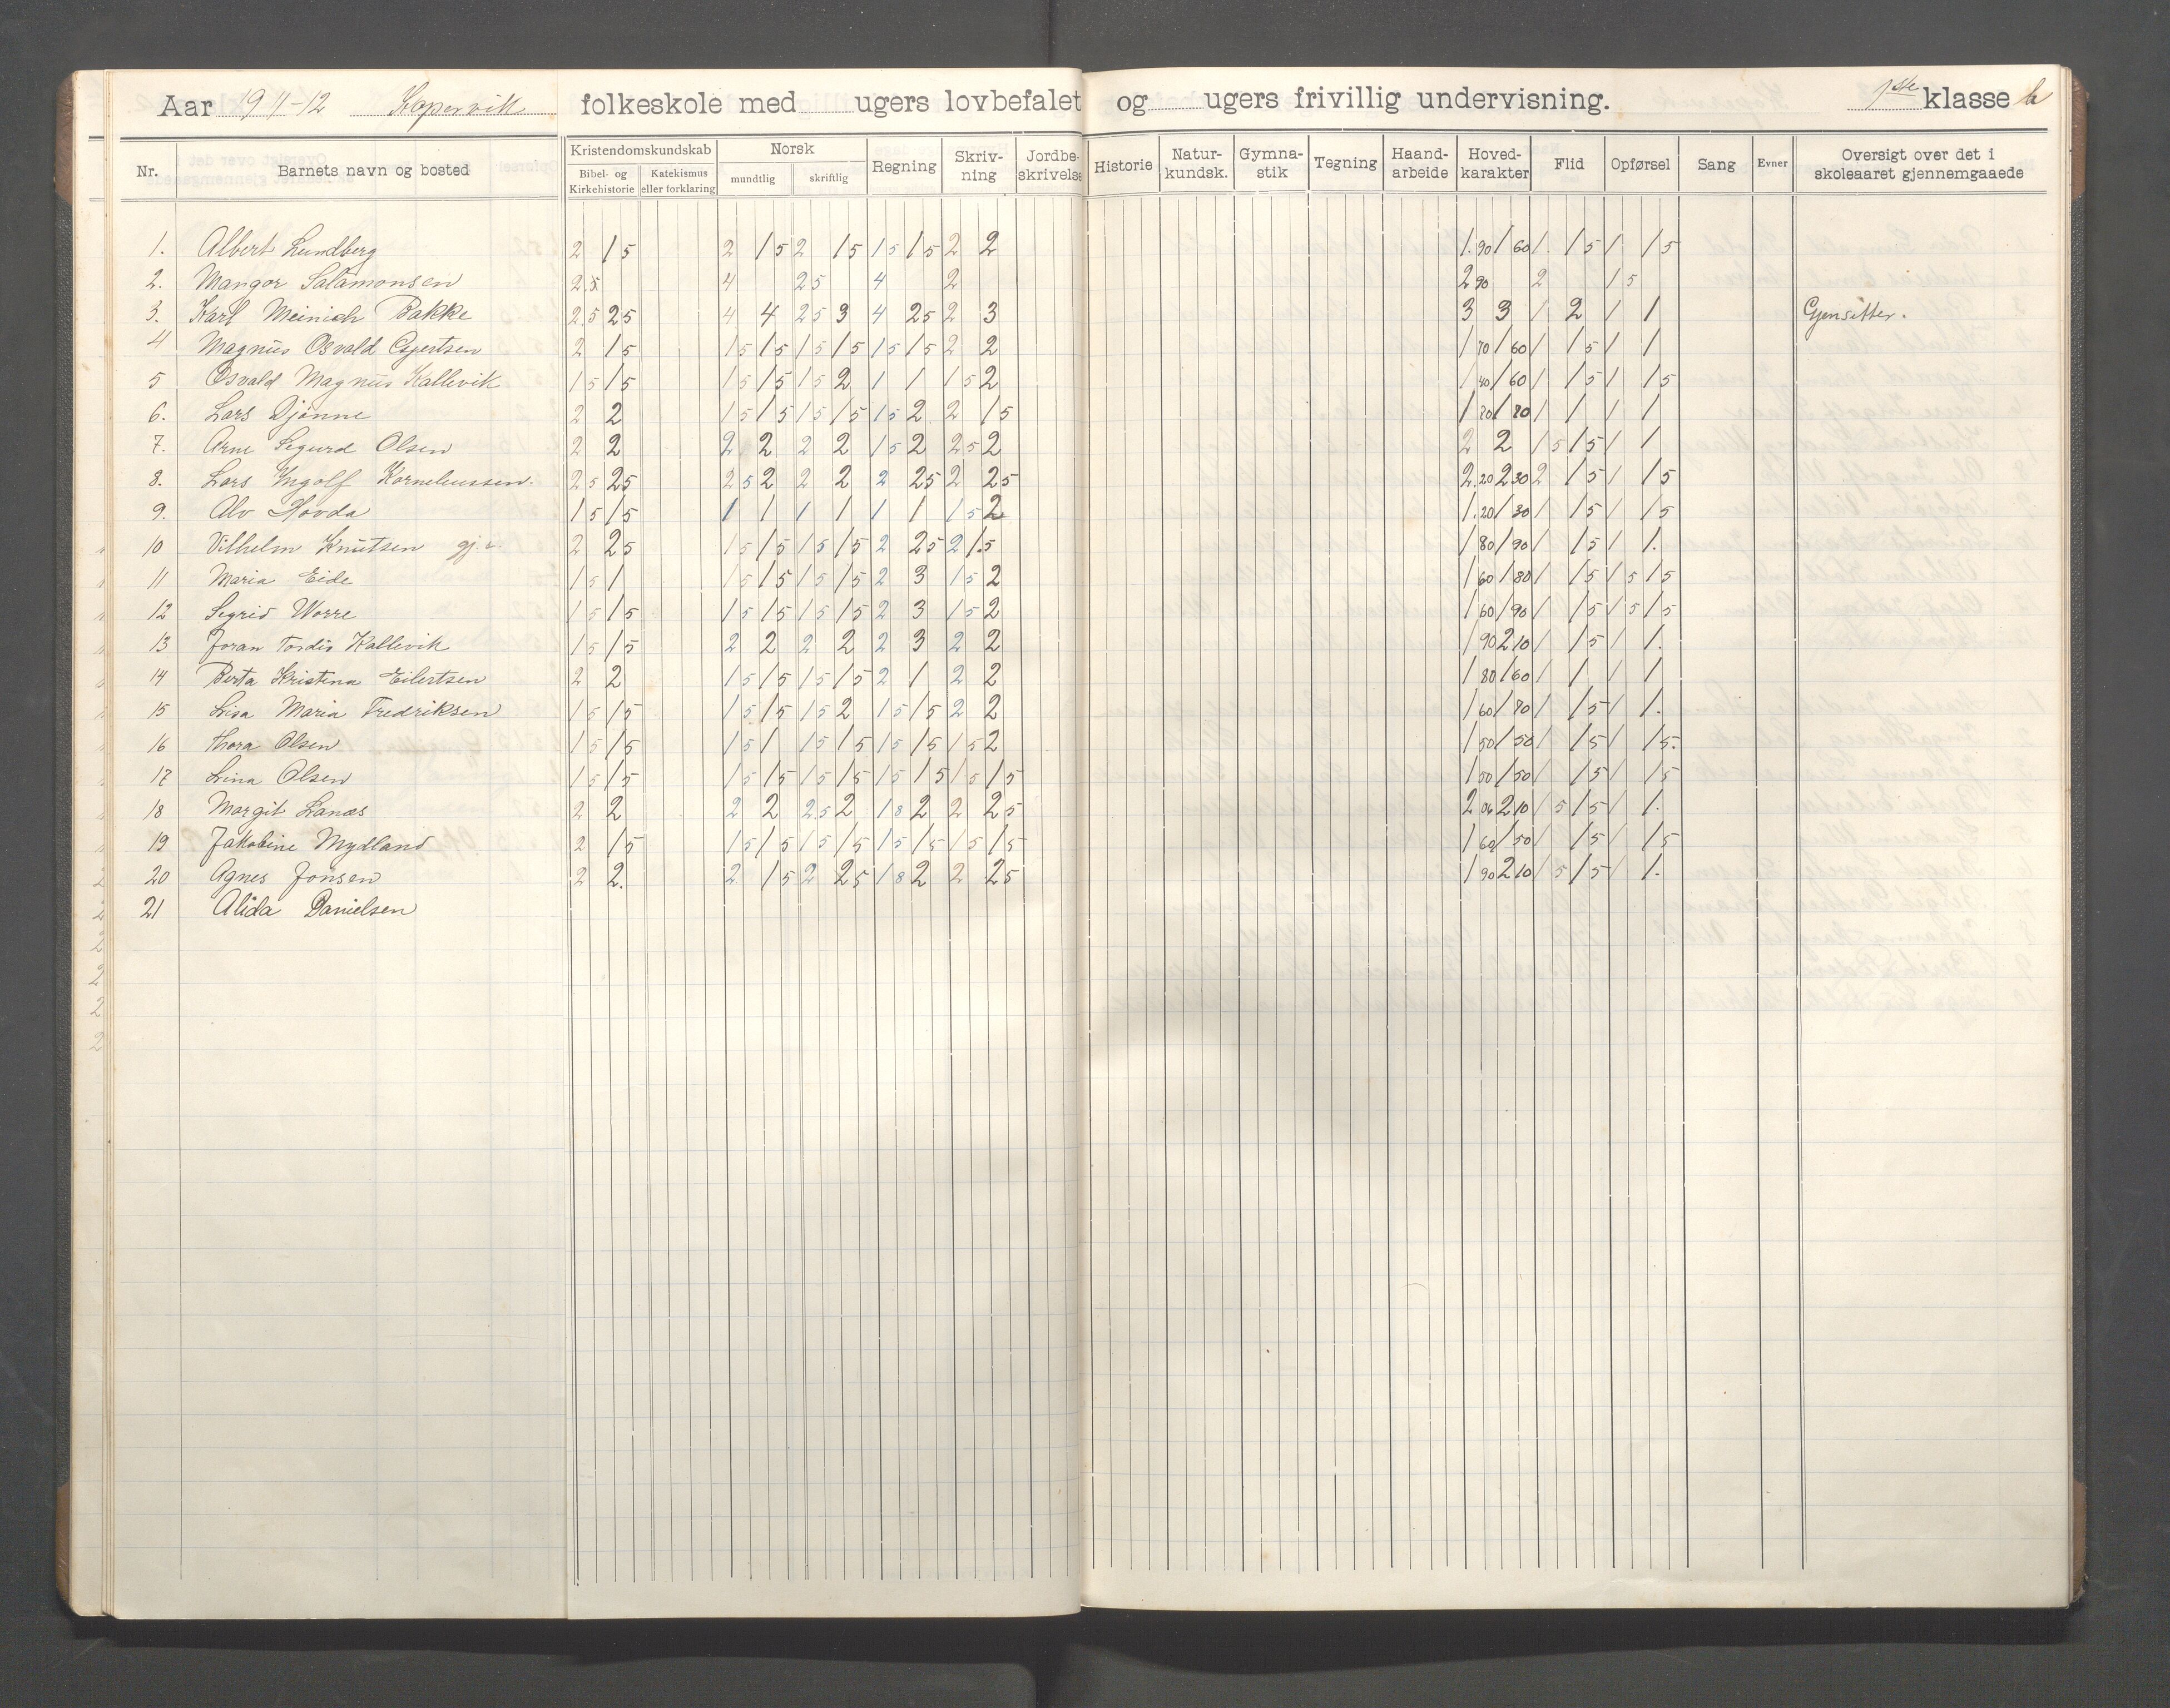 Aar 1911-12 Kopervik folkeskole med ugers lovbefalet og ugers frivillig undervisning. 1ste klasse b
Nr. Barnets navn og bosted Kristendomskundskab Bibel- og Kirkehistorie Katekismus eller forklaring Norsk mundtlig skriftlig Regning Skriv-ning Jordbe-skrivelse Historie Natur-kundsk. Gymna-stik Tegning Haand-arbeide Hoved-karakter Flid Opførsel Sang Evner Oversigt over det i skoleaaret gjennemgaaede
1. Albert Lundberg 2 15 2 15 2 15 15 15 2 2 1.90 1 60 1. 15 1 15
2. Mangor Salamonsen 2.5 4 25 4 2 2 90 2 15
3. Karl Meinich Bakke 25 25 4 4 25 3 4 25 2 3 3 3 1 2 1 1 Gjensitter.
4 Magnus Osvald 2 15 15 15 15 15 15 15 2 2 1 70 1 60 1 15 1 1
5 Osvald Magnus Kallevik 15 15 15 15 15 2 1 1 15 2 1 40 1 60 1 15 1 15
6. Lars Djønne 2 2 15 15 15 15 15 2 2 15 1 70 1 70 1 1 1 1
7. Arne Sigurd Olsen 2 2 2 2 2 2 15 2 25 2 2 2 15 15 1 1
8. Lars Ingolf Korneliussen. 25 25 25 2 2 2 2 25 2 25 2.20 2 30 2 15 1 15
9. Alv Hovda 15 15 1 1 1 1 1 1 15 2 1.20 1 30 1 15 1 15
10 Vilhelm Knutsen 2 25 15 15 15 15 2 25 2 1.5 1 80 1 90 1 15 1 1.
11 Maria Eide 15 1 15 15 15 15 2 3 15 2 1 60 1 80 1 15 15 15
12 Sigrid Worre 15 15 15 15 15 15 2 3 15 2 1 60 1 90 1 15 15 15
13 Joran Tordis Kallevik 15 15 2 2 2 2 2 3 2 2 1 90 2 10 1 15 1 1.
14 Berta Kristina Eilertsen 2 2 15 15 15 15 2 1 2 2 1 80 1 60 1 1 1 1
15 Lisa Maria Fredriksen 15 15 15 15 15 2 15 15 2 2 1 60 1 70 1 15 1 1.
16 Thora Olsen 15 15 15 1 15 15 15 15 15 2 1 50 1 50 1 15 1 15.
17 Lina Olsen 15 15 15 15 15 15 15 15 15 15 1 50 1 50 1 15 1 15
18 Margit Lanæs 2 2 2 2 2.5 2 18 2 2 25 2 06 2 10 15 15 1 1.
19 Jakobine Mydland 2 15 15 15 15 15 15 15 15 15 1 60 1 50 1 15 1 15
20 Agnes Jonsen 2 2. 2 15 2 25 18 2 2 25 1 90 2 10 15 15 1 1.
21 Alida Danielsen